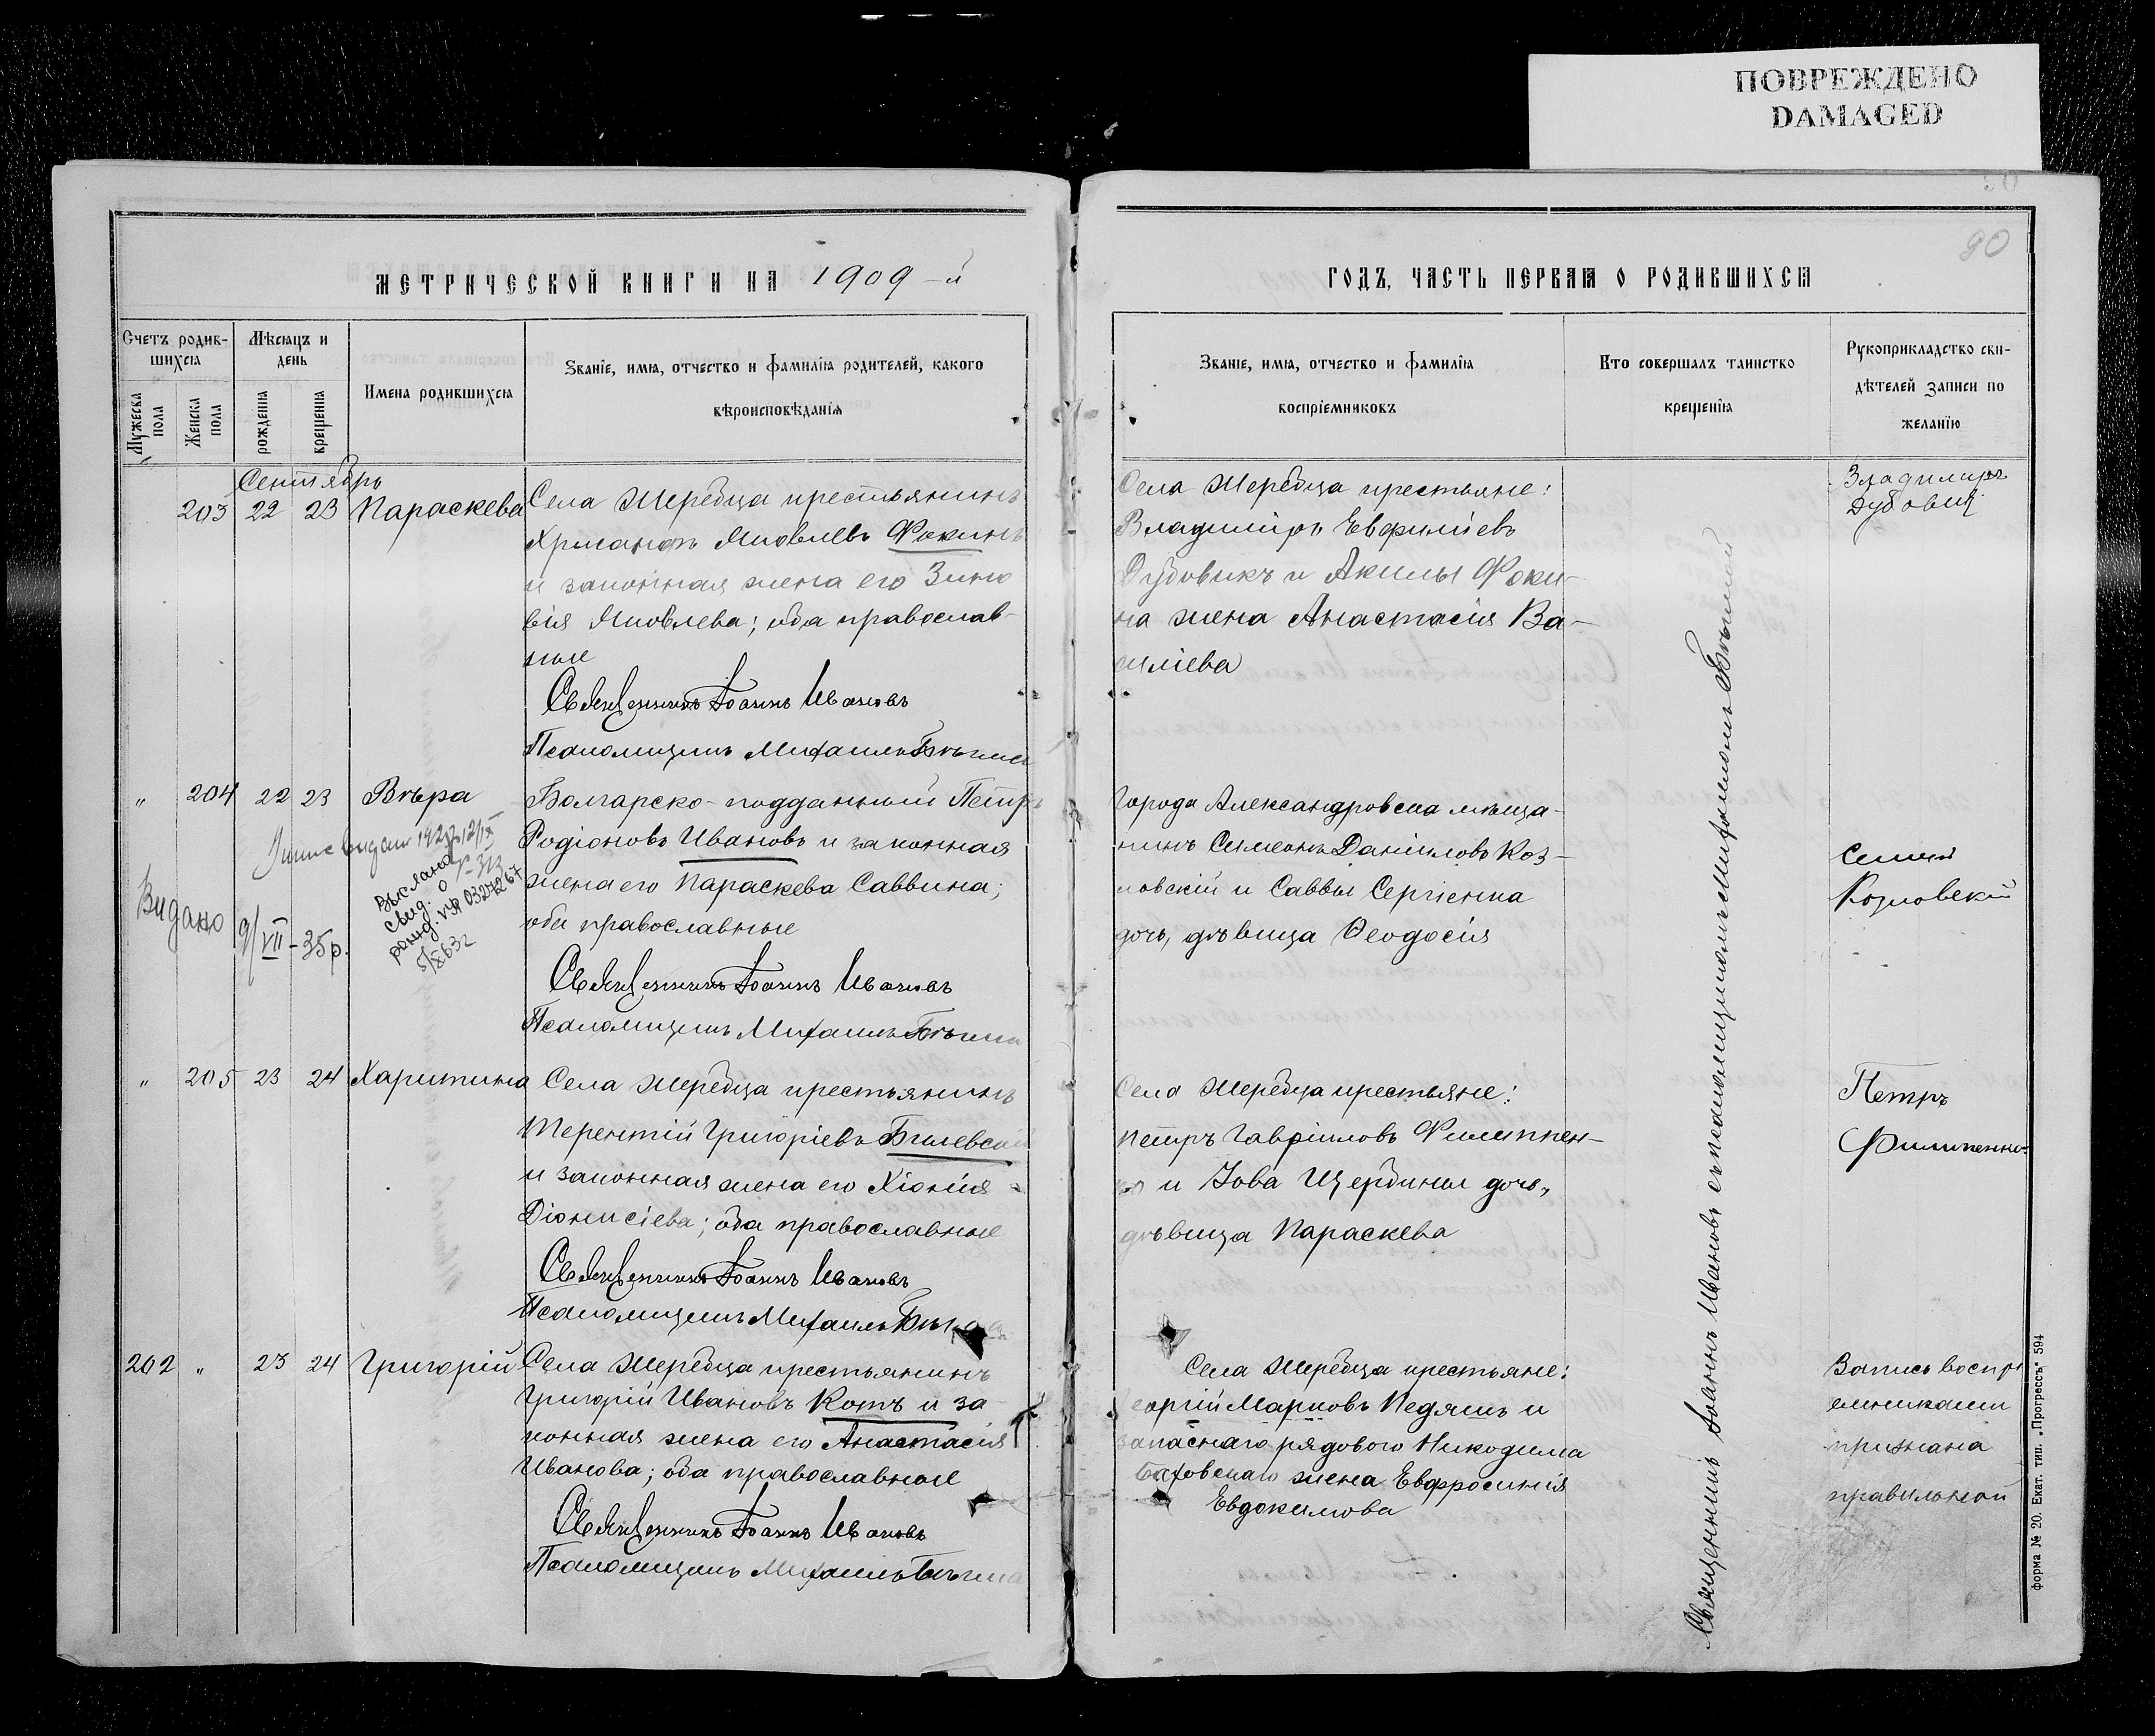 ПОВРЕЖДЕНО
DAMAGED
90
МЕТРИЧЕСКОЙ КНИГИ НА 1909-й
Счетъ родившихся
Мѣсяцъ и день
Мужеска пола
Женска пола
рожденія
крещенія
Имена родившихся
Званіе, имя, отчество и фамилія родителей, какого
вѣроисповѣданія
Сентябрь
203 22 23 Параскева
Села Жеребца крестьянинъ
Яковлевъ Фокинъ
и законная жена его Зино
вія Яковлева; оба православ-
ные
Священникъ Іоаннъ Ивановъ
Псаломщикъ Михаилъ
" 204 22 23 Вѣра
Болгарско-подданный Петръ
Родіоновъ Ивановъ и законная
жена его Параскева Саввина;
оба православные
Священникъ Іоаннъ Ивановъ
Псаломщикъ Михаилъ
выслано
свид. о
рожд. УЯ 0327267
5/X 63 г
Видано 9/VII-35р.
" 205 23 24 Харитина
Села Жеребца крестьянинъ
Терентій Григоріевъ
и законная жена его Хіонія
Діонисіева; оба православные
Священникъ Іоаннъ Ивановъ
Псаломщикъ Михаилъ
202 " 23 24 Григорій
Села Жеребца крестьянинъ
Григорій Ивановъ Котъ и за
конная жена его Анастасія
Иванова; оба православные
Священникъ Іоаннъ Ивановъ
Псаломщикъ Михаилъ
ГОДЪ, ЧАСТЬ ПЕРВАЯ О РОДИВШИХСЯ
Званіе, имя, отчество и фамилія
воспріемниковъ
Кто совершалъ таинство
крещенія
Рукоприкладство сви-
дѣтелей записи по
желанію
Села Жеребца крестьяне:
Владиміръ Евфиміевъ
Дубовикъ и Акилы Фоки-
на жена Анастасія Ва-
силіева
Владимиръ
Дубовик
Города Александровска мѣща-
нинъ Симеонъ Даніиловъ Коз-
ловскій и Саввы Сергіенка
дочь, дѣвица Ѳеодосія
Семен
Козловский
Села Жеребца крестьяне:
Петръ Гавріиловъ Филиппен-
ко и Іова Щербины дочь,
дѣвица Параскева
Петръ
Филипенко
Села Жеребца крестьяне:
Георгій Марковъ Педяшъ и
запаснаго рядового Никодима
жена Евфросинія
Евдокимова
Запись воспрі
емниками
признана
правильной
Священникъ Іоаннъ Ивановъ съ псаломщикомъ Михаиломъ
форма № 20. Екат. тип. „Прогрессъ" 594